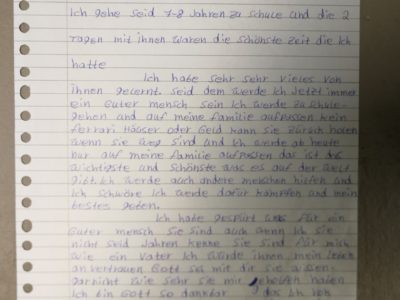 Ich gehe seid 7-8 Jahren zu schule und die 2
Tagen mit ihnen waren die schönste zeit die ich
hatte
Ich habe sehr sehr vieles von
ihnen gelernt. Seid dem werde ich Jetzt immer
ein Guter mensch sein Ich werde zu schule-
gehen und auf meine Familie aufpassen kein
Ferrari Häuser oder Geld kann sie zurück holen
wenn sie weg sind und Ich werde ab heute
nur auf meine Familie aufpassen das ist das
wichtigste und schönste was es auf der welt
gibt. Ich werde auch andere menschen helfen und
Ich schwöre Ich werde dafür kämpfen und mein
bestes geben.
Ich habe gespürt was für ein
Guter mensch sie sind auch wenn ich sie
nicht seid Jahren kenne sie sind für mich
wie ein Vater Ich würde ihnen mein leben
anvertrauen Gott sei mit dir sie wissen
garnicht wie sehr sie mir geholfen haben
Ich bin Gott so dankbar das ich